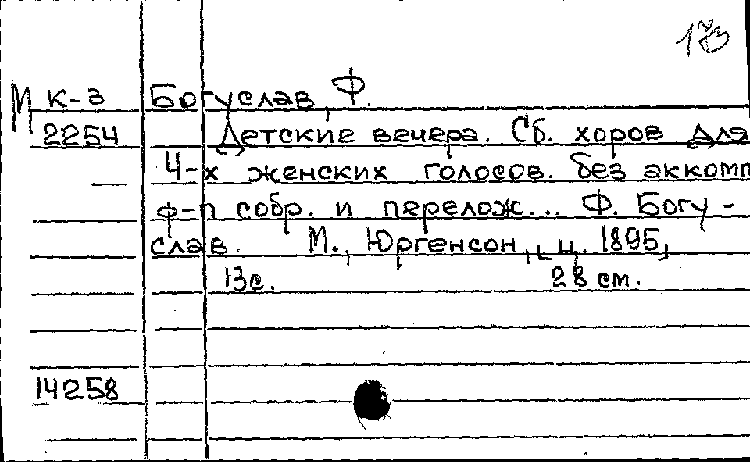 173
М к-з Богуслав, Ф.
2254 Детские вечера. Сб. хоров для
4-х женских голосов. без аккомп
ф-п собр. и перелож... Ф. Богу-
слав. М., Юргенсон, ц. 1895,
13с. 28 см.
14258